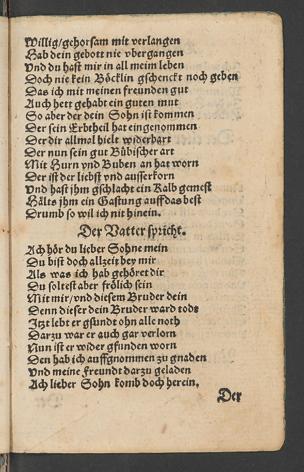 Willig/gehorsam mit verlangen
Hab dein gebott nie vbergangen
Vnd du hast mir in all meim leben
Doch nie kein Böcklin gschenckt noch geben
Das ich mit meinen freunden gut
Auch hett gehabt ein guten mut
So aber der dein Sohn ist kommen
Der sein Erbtheil hat eingenommen
Der dir allmal hielt widerbart
Der nun sein gut Bübischer art
Mit Hurn vnd Buben an hat worn
Der ist der liebst vnd ausserkorn
Vnd hast jhm gschlacht ein Kalb gemest
Hälts jhm ein Gastung auff das best
Drumb so wil ich nit hinein.
Der Vatter spricht.
Ach hör du lieber Sohne mein
Du bist doch allzeit bey mir
Als was ich hab gehöret dir
Du soltest aber frölich sein
Mit mir/vnd diesem Bruder dein
Denn dieser dein Bruder ward todt
Jtzt lebt er gsundt ohn alle noth
Darzu war er auch gar verlorn
Nun ist er wider gfunden worn
Den hab ich auffgnommen zu gnaden
Vnd meine freundt darzu geladen
Ach lieber Sohn komb doch herein,
Der